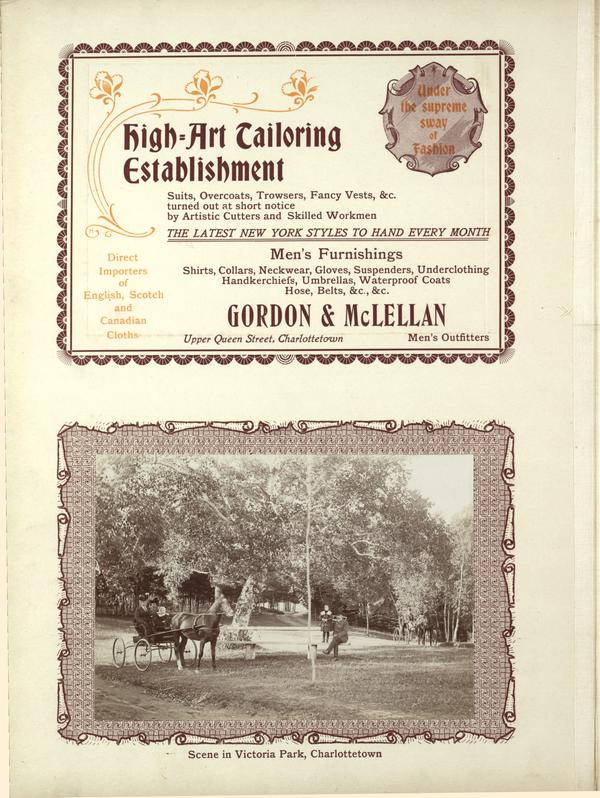 Under
the supreme
sway
of
Fashion
High-Art Tailoring
Establishment
Suits, Overcoats, Trowsers, Fancy Vests, &c.
turned out at short notice
by Artistic Cutters and Skilled Workmen
THE LATEST NEW YORK STYLES TO HAND EVERY MONTH
Direct
Importers
of
English, Scotch
and
Canadian
Cloths
Men's Furnishings
Shirts, Collars, Neckwear, Gloves, Suspenders, Underclothing
Handkerchiefs, Umbrellas, Waterproof Coats
Hose, Belts, &c., &c.
GORDON & McLELLAN
Upper Queen Street, Charlottetown
Men's Outfitters
Scene in Victoria Park, Charlottetown